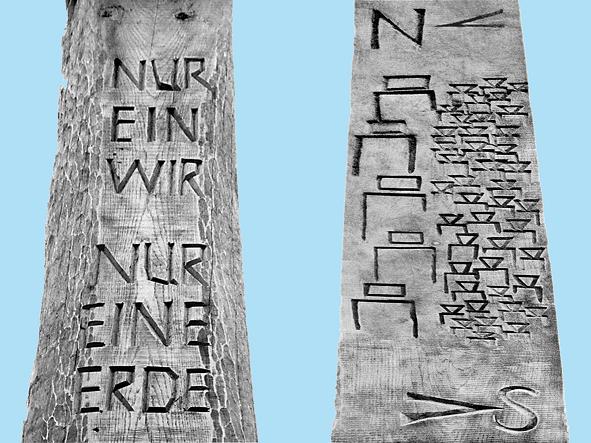 NUR
EIN
WIR
NUR
EINE
ERDE
N
S